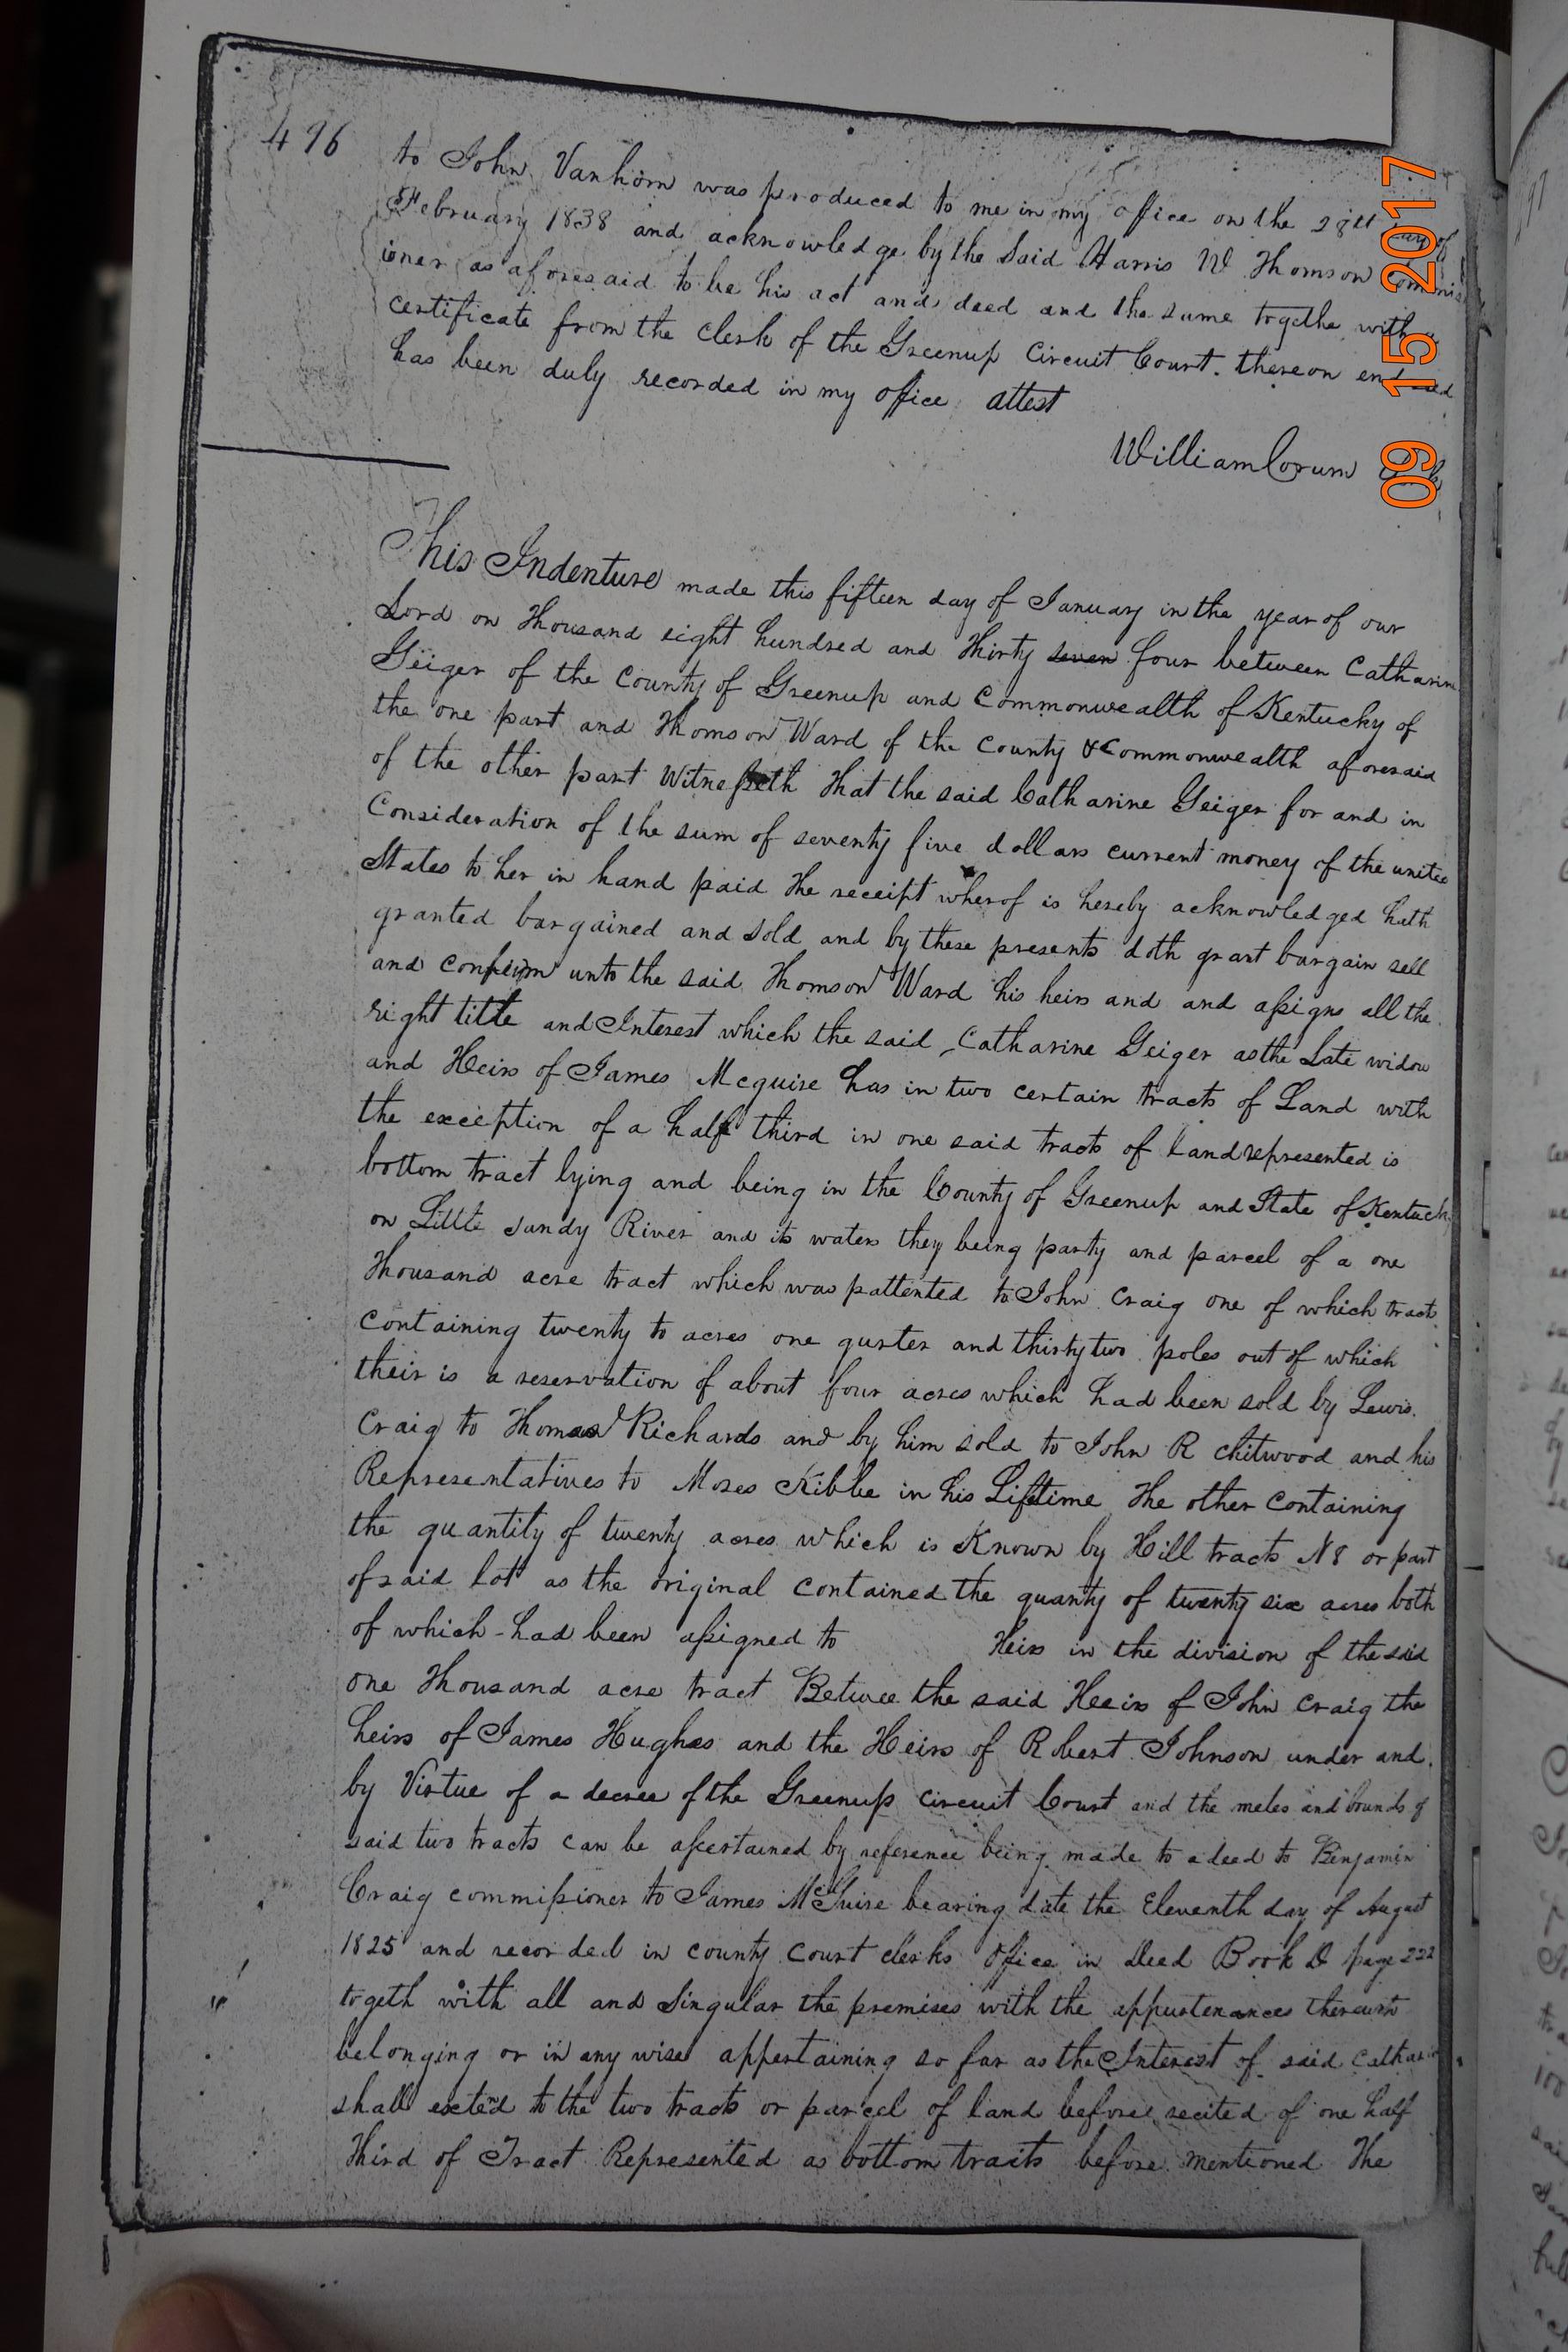 496
to John Vanhorn was produced to me in my office on the 28th day of
February 1838 and acknowledge by the Said Harris W Thomson Commis
ioner as aforesaid to be his act and deed and the same togethe with
certificate from the clerk of the Greenup Circuit Court. thereon endorsed
has been duly recorded in my office attest
William Corum
This Indenture made this fifteen day of January in the year of our
Lord on Thousand eight hundred and Thirty seven four between Catharine
Geiger of the County of Greenup and Commonwealth of Kentucky of
the one part and Thomson Ward of the County & Commonwealth aforesaid
of the other part Witnesseth That the said Catharine Geiger for and in
Consideration of the sum of seventy five dollars current money of the united
States to her in hand paid The receipt wherof is hereby acknowledged hath
granted bargained and sold and by these presents doth grant bargain sell
and confirm unto the said Thomson Ward his heirs and and assigns all the
right title and Interest which the said Catharine Geiger as the Late widow
and Heirs of James Mcguire has in two certain tracts of Land with
the exception of a half third in one said tracts of land represented is
bottom tract lying and being in the County of Greenup and State of Kentucky
on Little Sandy River and its waters they being party and parcel of a one
Thousand acre tract which was pattented to John Craig one of which tract
containing twenty to acres one qurter and thirty two poles out of which
their is a reservation of about four acres which had been sold by Lewis
Craig to Thomas Richards and by him sold to John R Chitwood and his
Representatives to Moses Kibbe in his Lifetime The other containing
the quantity of twenty acres which is Known by Hill tracts N8 or part
of said lot as the original contained the quanty of twenty six acres both
of which had been assigned to Heirs in the division of the said
one Thousand acre tract Betwee the said Heeirs of John Craig the
heirs of James Hughes and the Heirs of Robert Johnson under and
by Virtue of a decree of the Greenup Circuit Court and the metes and bounds of
said two tracts can be assertained by reference being made to a deed to Benjamin
Craig commissioner to James McGuire bearing date the Eleventh day of August
1825 and recorded in county Court clerks Office in Deed Book D page 222
togeth with all and singular the premises with the appurtenances thereunto
belonging or in any wise appertaining so far as the Interest of said Catharin
shall exctend to the two tracts or parcel of land before recited of one half
Third of Tract Represented as bottom tracts before mentioned The
09 15 2017